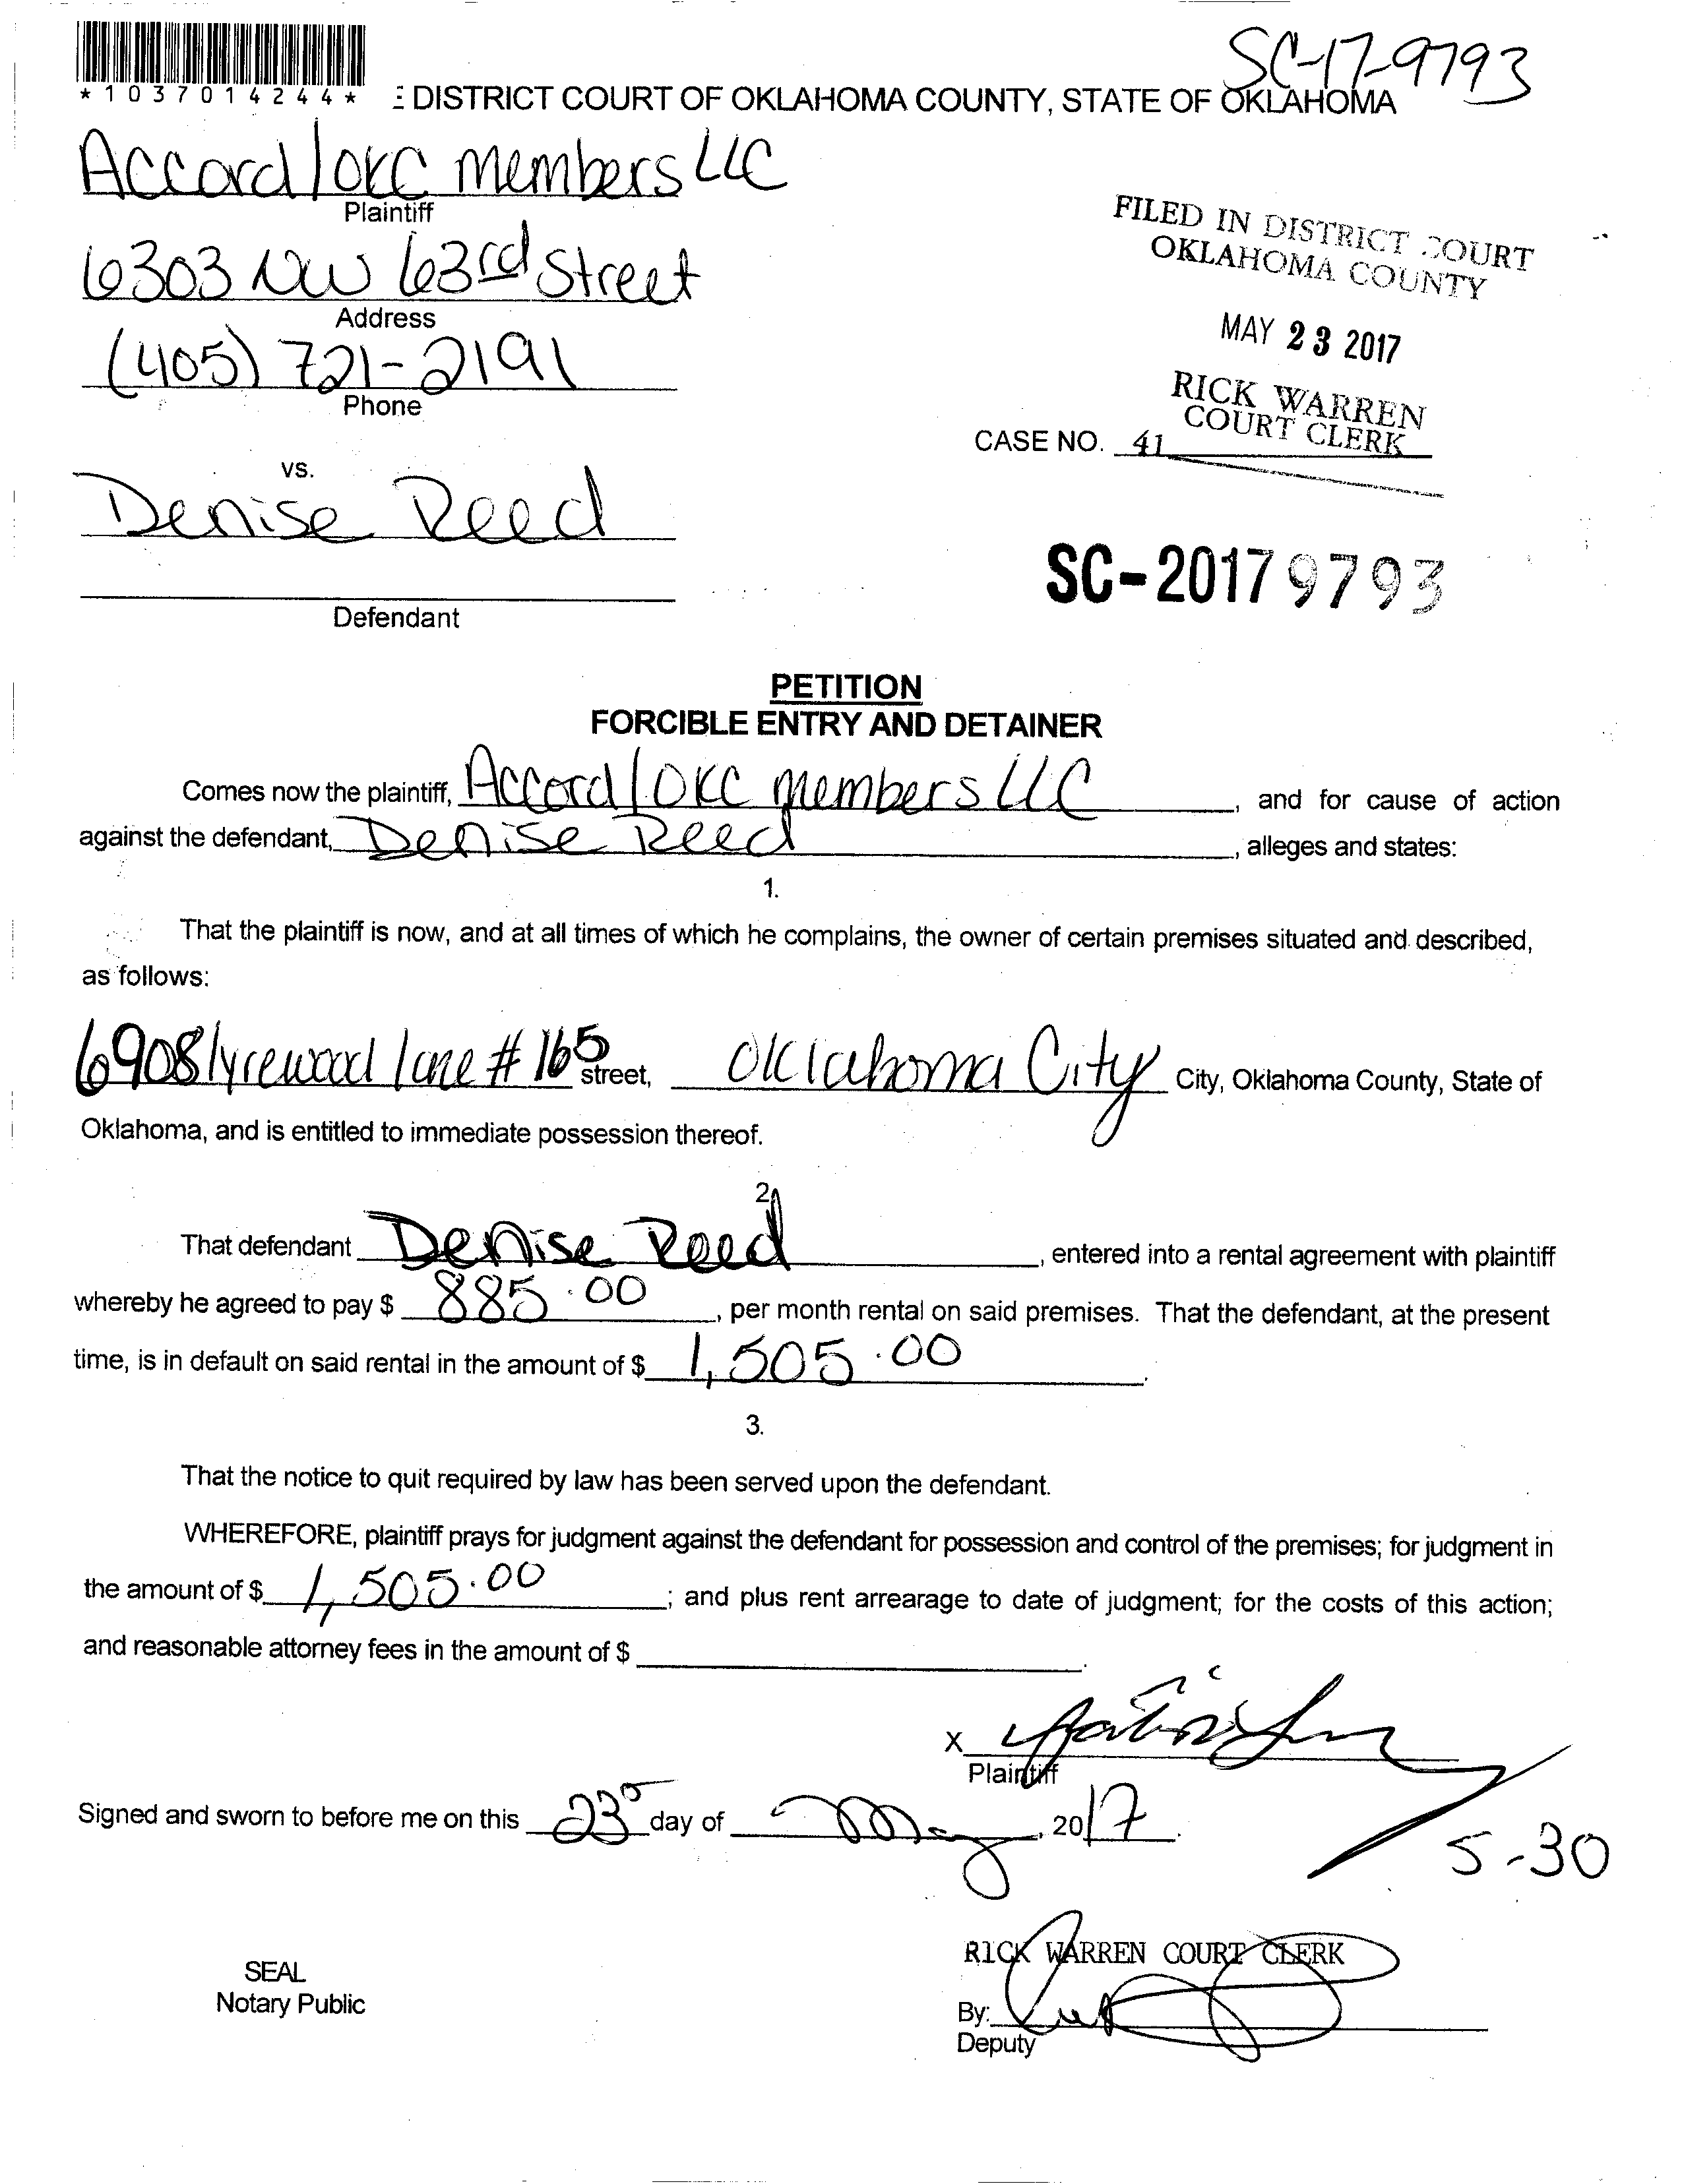 SC-17-9793
*1037014244*
DISTRICT COURT OF OKLAHOMA COUNTY, STATE OF OKLAHOMA
Accord/OKC members LLC
Plaintiff
6303 NW 63rd Street
Address
(405) 721-2191
Phone
FILED IN DISTRICT COURT
OKLAHOMA COUNTY
MAY 23 2017
RICK WARREN
COURT CLERK
CASE NO. 41
vs.
Denise Reed
Defendant
SC-2017 9793
PETITION
FORCIBLE ENTRY AND DETAINER
Comes now the plaintiff, Accord/OKC members LLC, and for cause of action
against the defendant, Denise Reed, alleges and states:
1.
That the plaintiff is now, and at all times of which he complains, the owner of certain premises situated and described,
as follows:
6908 lyrewood lane # 165 street, Oklahoma City City, Oklahoma County, State of
Oklahoma, and is entitled to immediate possession thereof.
2.
That defendant Denise Reed, entered into a rental agreement with plaintiff
whereby he agreed to pay $ 885.00, per month rental on said premises. That the defendant, at the present
time, is in default on said rental in the amount of $ 1,505.00.
3.
That the notice to quit required by law has been served upon the defendant.
WHEREFORE, plaintiff prays for judgment against the defendant for possession and control of the premises; for judgment in
the amount of $ 1,505.00; and plus rent arrearage to date of judgment; for the costs of this action;
and reasonable attorney fees in the amount of $.
X
Plaintiff
Signed and sworn to before me on this 23 day of May, 2017.
5-30
RICK WARREN COURT CLERK
SEAL
Notary Public
By:
Deputy